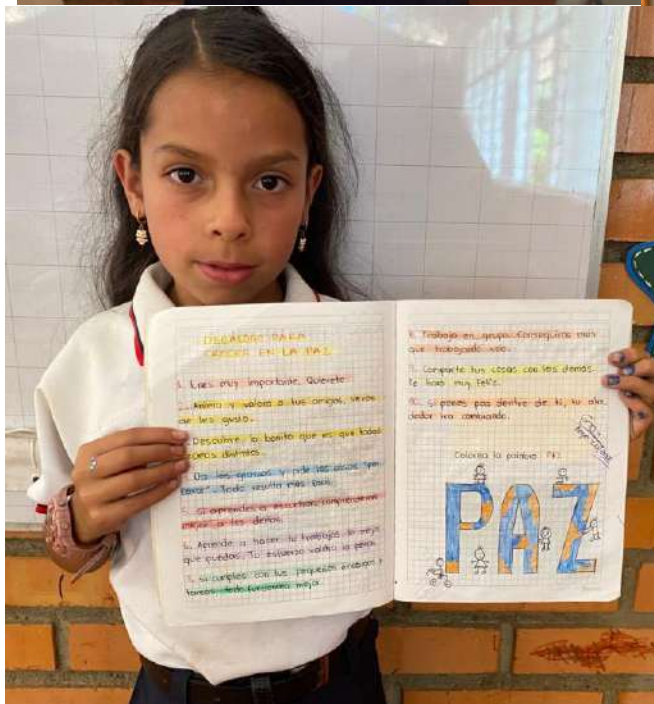 DECÁLOGO PARA
CRECER EN LA PAZ
1. Eres muy importante. Quierete.
2. Anima y valora a tus amigos, veras
que les gusta.
3. Descubre lo bonito que es que todos
somos distintos.
4. Da las gracias y pide las cosas "por
favor". Todo resulta mas facil.
5. si aprendes a escuchar, comprenderas
mejor a los demas.
6. Aprende a hacer tu trabajo lo mejor
que puedas. Tu esfuerzo valdra la pena.
7. si cumples con tus pequeños encargos y
tareas todo funcionara mejor.
8. Trabaja en grupo. Conseguiras mas
que trabajando solo.
9. Comparte tus cosas con los demas.
te hara muy feliz.
10. si pones paz dentro de ti, tu alre
dedor ira cambiando.
Colorea la palabra PAZ
PAZ